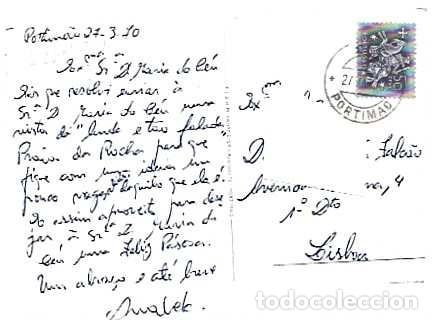 Portimão 27.3.70
Exma Srª D. Maria do Céu
Eis que resolvi enviar à
Srª D. Maria do Céu uma
vista da "linda e tão falada"
Praia da Rocha para que
fique com uma ideia um
pouco vaga daquilo que ela é.
E assim aproveito para dese
jar à Srª D. Maria do
Céu uma Feliz Páscoa.
Um abraço e até breve
PORTIMÃO
27
Exma
D. Falcão
4
1º Dto
Lisboa
todocoleccion